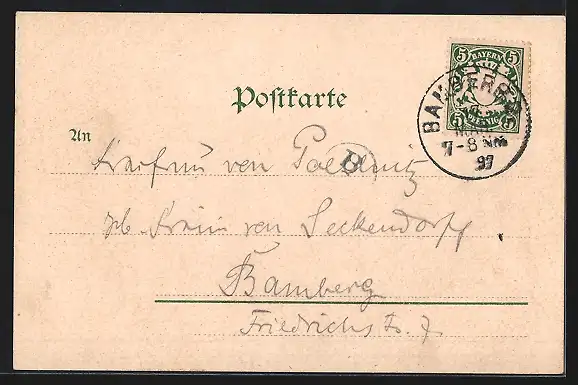 5 BAYERN 5
5 PFENNIG 5
BAMBERG
7-8 Nm
97
Postkarte
An
von Poellnitz
geb. Freiin von Seckendorff
Bamberg
Friedrichstr. 7.